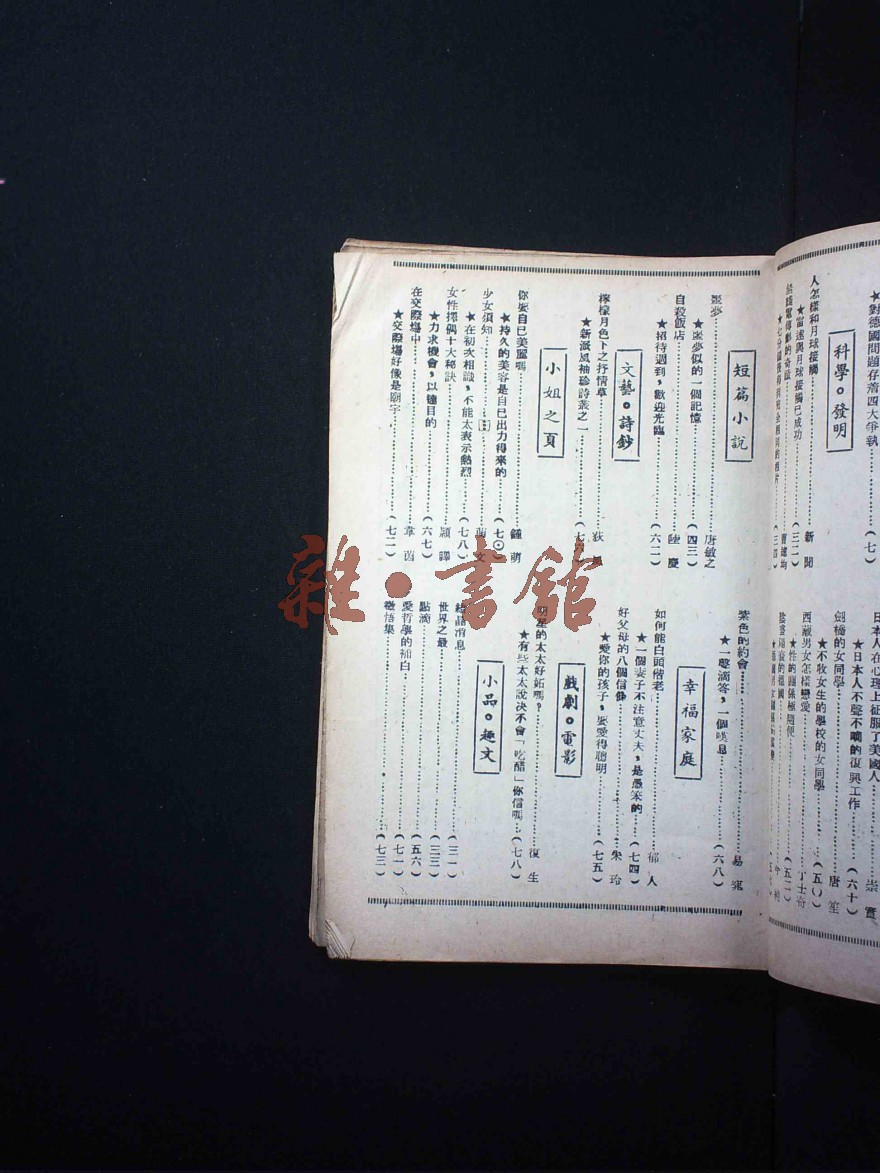 ★對德國問題存着四大爭執……(七)
科學。發明
人怎樣和月球接觸……新聞
★當述與月球接觸已成功……(三二)
短篇小說
噩夢……唐敏之
★噩夢似的一個記憶……(四三)
自殺飯店……陸慶
★招待週到，歡迎光臨……(六二)
文藝。詩鈔
檸檬月色下之抒情草……狄
★新滙風袖珍詩叢之一
小姐之頁
你要自己美麗嗎……鍾萌
★持久的美容是自己出力得來的……(七〇)
少女須知……茵文
★在初次相識，不能太表示熱烈……(七八)
女性擇偶十大秘訣……穎鐸
★力求機會，以達目的……(六七)
在交際塲中……韋茵
★交際塲好像是廟宇……(七二)
日本人在心理上征服了美國人……崇實
★日本人不聲不嚮的復興工作……(六十)
劍橋的女同學……唐笙
★不收女生的學校的女同學……(五〇)
西藏男女怎樣戀愛……丁士奇
★性的關係極隨便……(五二)
紫色的約會……易寃
★一聲滴答，一個嘆息……(六八)
幸福家庭
如何能白頭偕老……郁人
★一個妻子不注意丈夫，是愚笨的……(七四)
好父母的八個信條……朱玲
★愛你的孩子，要愛得聰明……(七五)
戲劇。電影
明星的太太好妬嗎？……復生
★有些太太說决不會「吃醋」你信嗎……(七八)
小品。趣文
結晶消息……(三一)
世界之最……(三三)
點滴……(五六)
愛哲學的補白……(七一)
徵悟集……(七三)
雜·書館